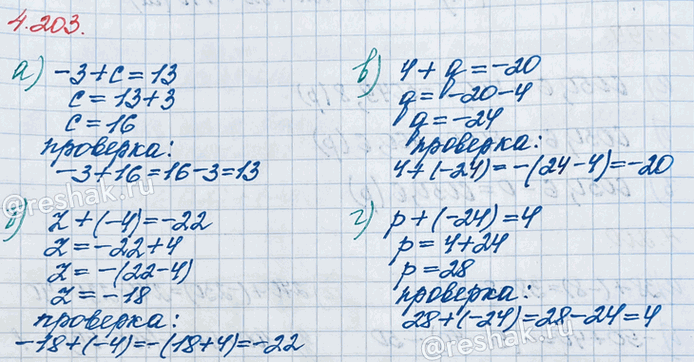 4.203.
а) -3+c=13
c=13+3
c=16
проверка:
-3+16=16-3=13
б) z+(-4)=-22
z=-22+4
z=-(22-4)
z=-18
проверка:
-18+(-4)=-(18+4)=-22
в) 4+q=-20
q=-20-4
q=-24
проверка:
4+(-24)=-(24-4)=-20
г) p+(-24)=4
p=4+24
p=28
проверка:
28+(-24)=28-24=4
@reshak.ru
@reshak.ru